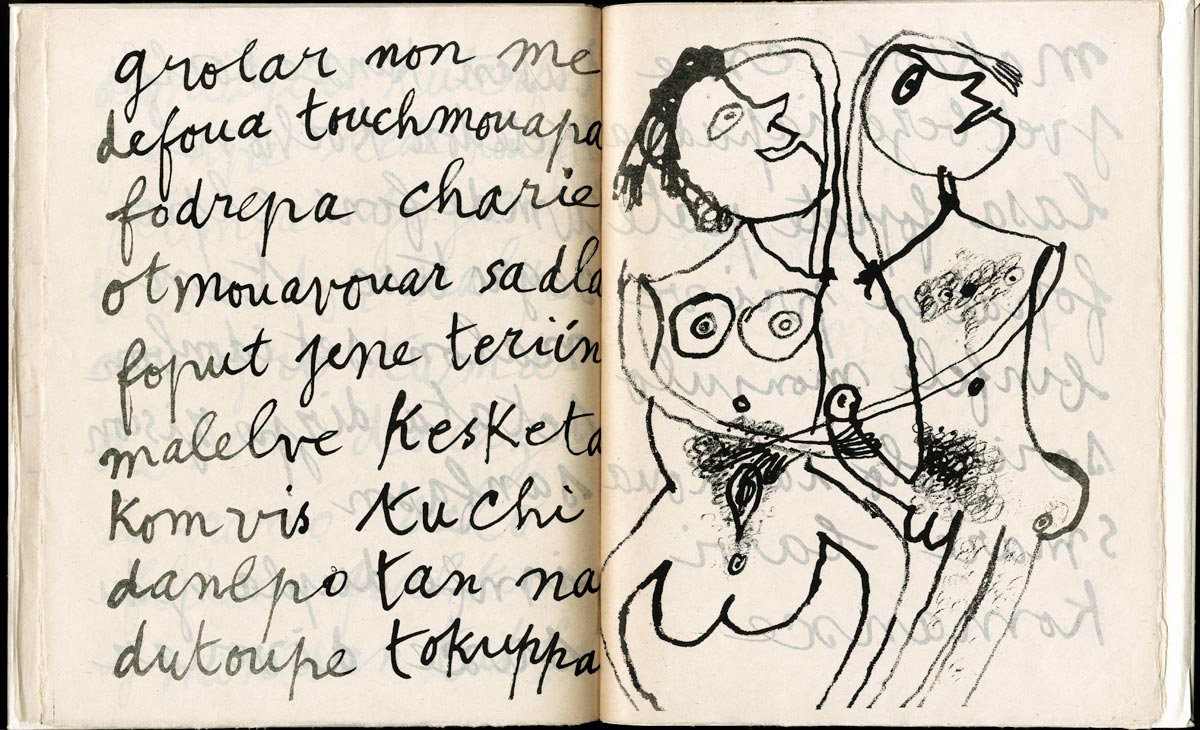 grolar non me
defoua touchmouapa
fodrepa charie
otmouavouar sadla
foput jene teriín
malelve kesketa
komvis tuchi
danlpo tan na
dutoupe tokuppa